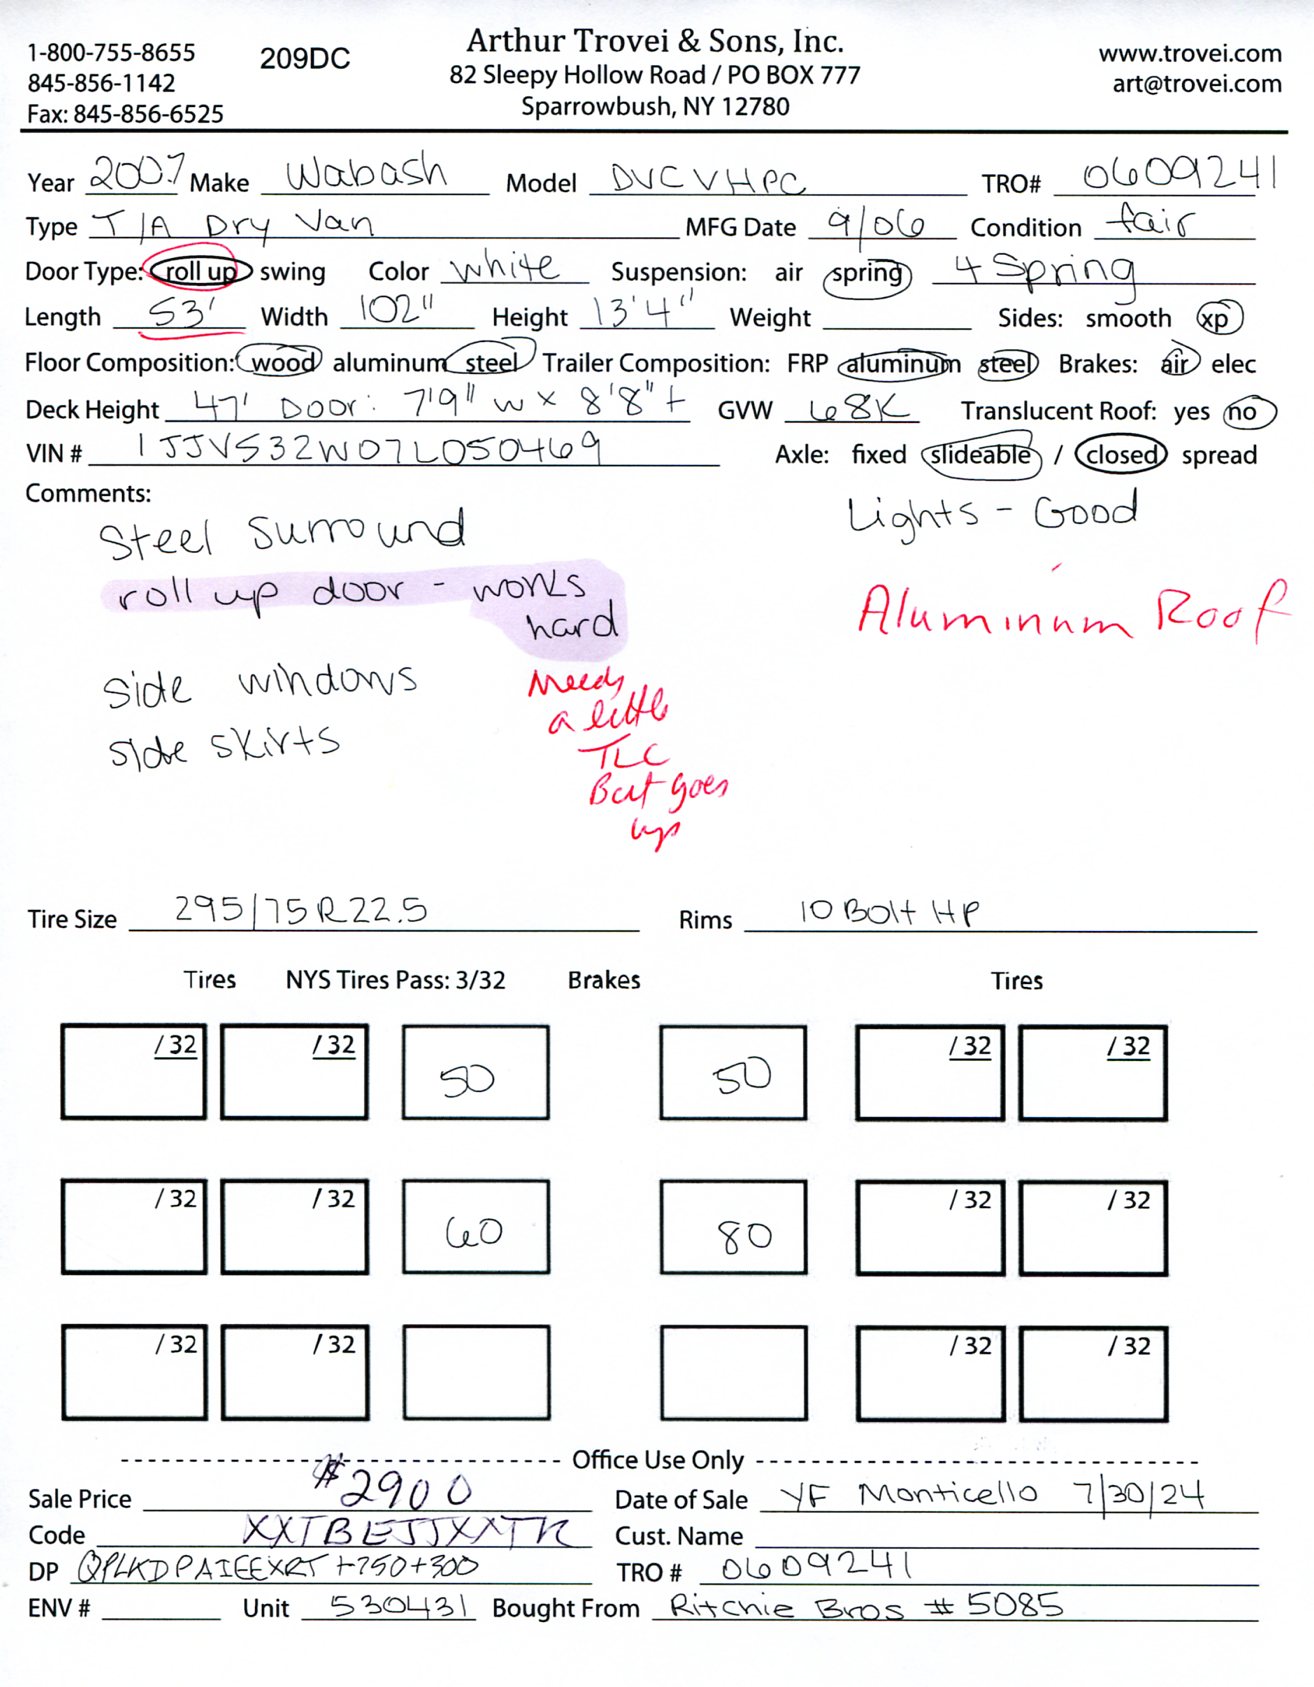 1-800-755-8655 209DC Arthur Trovei & Sons, Inc. www.trovei.com
845-856-1142 82 Sleepy Hollow Road / PO BOX 777 art@trovei.com
Fax: 845-856-6525 Sparrowbush, NY 12780
Year 2007 Make Wabash Model DVCVHPC TRO# 0609241
Type T/A Dry Van MFG Date 9/06 Condition fair
Door Type: roll up swing Color white Suspension: air spring 4 Spring
Length 53' Width 102" Height 13'4" Weight Sides: smooth xp
Floor Composition: wood aluminum steel Trailer Composition: FRP aluminum steel Brakes: air elec
Deck Height 47' Door: 7'9" w x 8'8" t GVW 68K Translucent Roof: yes no
VIN # 1JJV532W07L050469 Axle: fixed slideable / closed spread
Comments:
Steel Surround Lights - Good
roll up door - works
hard
Aluminum Roof
side windows
Needs
a little
side skirts
TLC
But goes
up
Tire Size 295/75R22.5 Rims 10 Bolt HP
Tires NYS Tires Pass: 3/32 Brakes Tires
/32 /32 50 50 /32 /32
/32 /32 60 80 /32 /32
/32 /32 /32 /32
Office Use Only
Sale Price $2900 Date of Sale YF Monticello 7/30/24
Code XXTBEJJXXTR Cust. Name
DP QPLKDPAIEEXRT +750+300 TRO # 0609241
ENV # Unit 530431 Bought From Ritchie Bros #5085